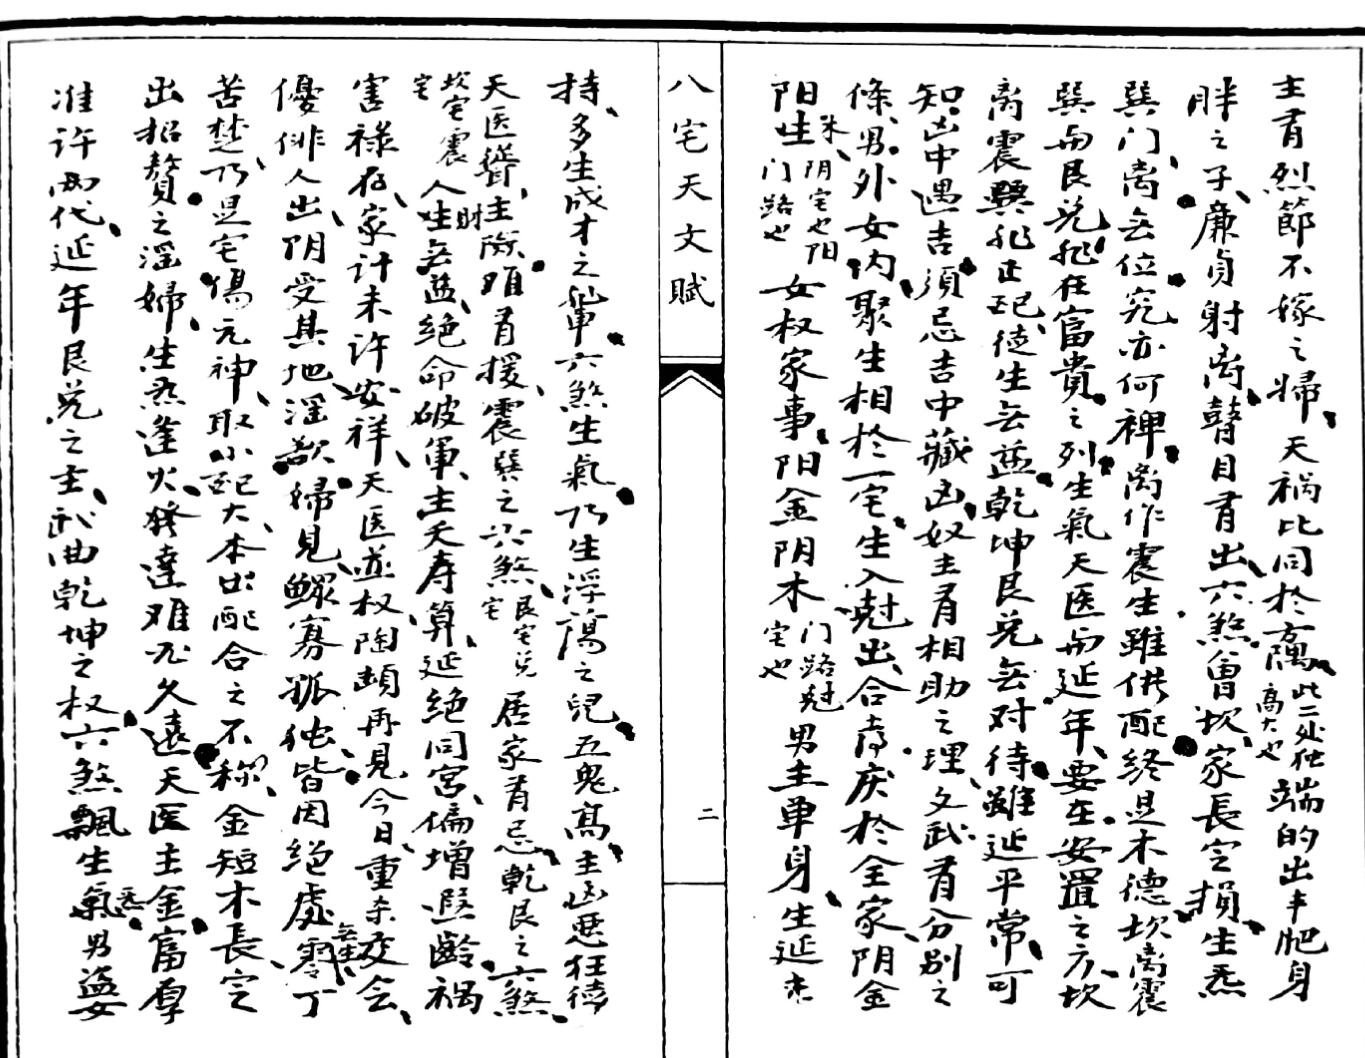 主有烈節不嫁之婦天禍比同於高隅此二处独高大也端的出丰肥身
胖之子廉貞射离瞽目有出六煞會坎家長定損生炁
巽门离去位究亦何裨离作震生雖供配終是木德坎离震
巽而艮兑非在富貴之列生氣天医而延年要在安置之方坎
离震巽非正配徒生去益乾坤艮兑去对待雖延平常可
知凶中遇吉須忌吉中藏凶奴主有相助之理文武有分别之
條男外女内聚生相於一宅生入尅出合壽庆於全家阴金
阳生米阴宅也阳门路也女权家事阳金阴木门路尅宅也男主单身生延未
八宅天文賦
二
持多生成才之輩六煞生氣乃生浮蕩之兒五鬼高主凶恶狂徒
天医聳主險难有援震巽之六煞艮宅兑宅居家有忌乾艮之六煞
坎宅震宅人生財去益绝命破軍主夭寿算延绝同宮偏增遐齡禍
害禄存家计未许安祥天医並权陶頔再見今日重来交会
優俳人出阴受其地淫欲婦見鰥寡孤独皆因绝處零丁
苦楚乃是宅傷元神取小配大本出配合之不称金短木長定
出招贅之淫婦生炁逢火發達难及久遠天医土金富厚
准许兩代延年艮兑之主武曲乾坤之权六煞飄生氣男盗女